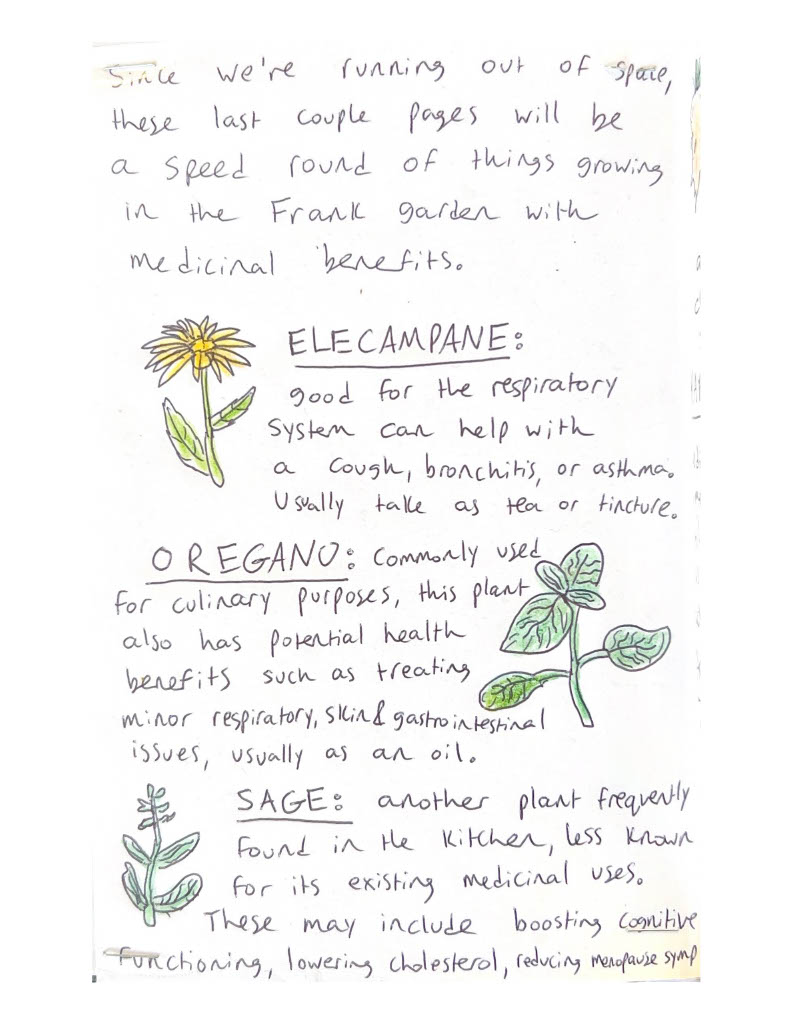 Since we're running out of space,
these last couple pages will be
a speed round of things growing
in the Frank garden with
medicinal benefits.
ELECAMPANE:
good for the respiratory
system can help with
a cough, bronchitis, or asthma.
Usually take as tea or tincture.
OREGANO: commonly used
for culinary purposes, this plant
also has potential health
benefits such as treating
minor respiratory, skin & gastrointestinal
issues, usually as an oil.
SAGE: another plant frequently
found in the kitchen, less known
for its existing medicinal uses.
These may include boosting cognitive
functioning, lowering cholesterol, reducing menopause symp